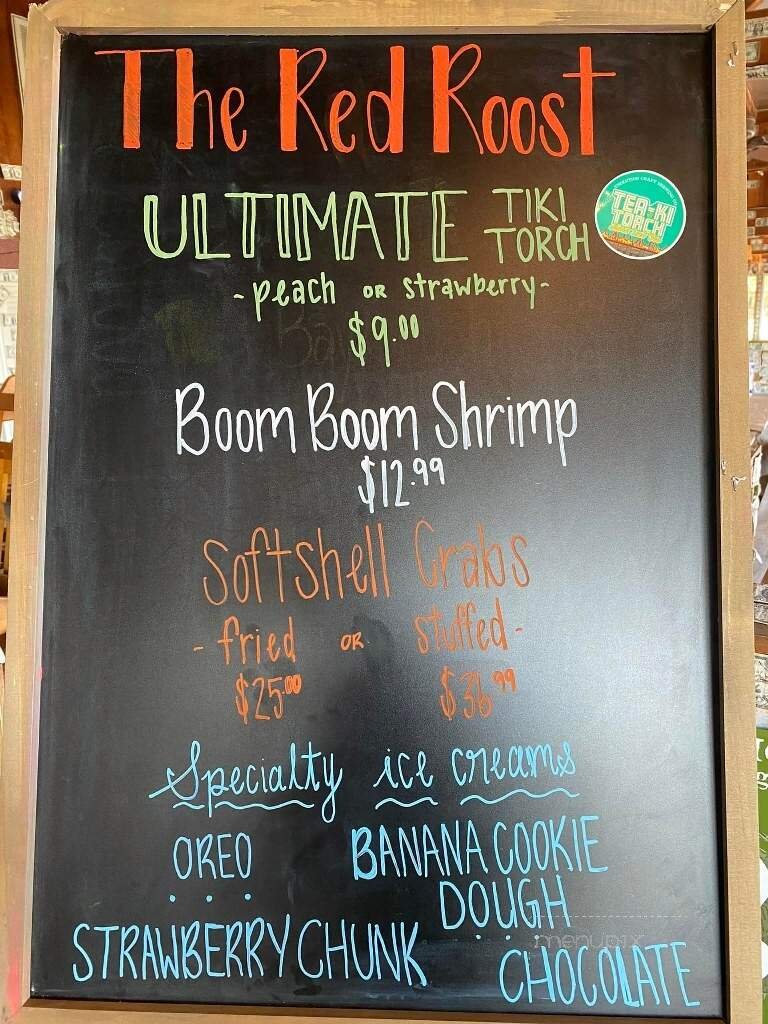 The Red Roost
ULTIMATE TIKI TORCH
TEA-KI TORCH
- peach OR strawberry -
$9.00
Boom Boom Shrimp
$12.99
Softshell Crabs
- fried OR stuffed -
$25.00 $36.99
Specialty ice creams
OREO BANANA COOKIE DOUGH
STRAWBERRY CHUNK
CHOCOLATE
menupix